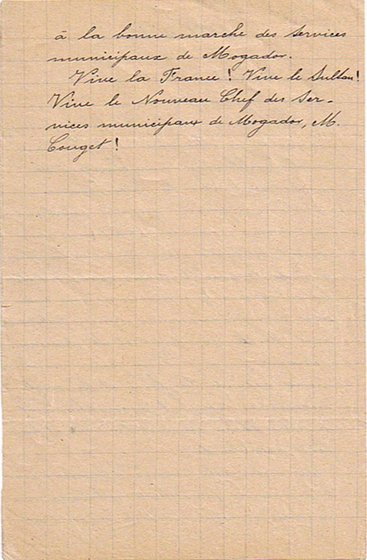 à la bonne marche des services
municipaux de Mogador.
Vive la France! Vive le Sultan!
Vive le Nouveau Chef des Ser-
vices municipaux de Mogador, M.
Couget!